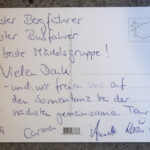 ster Bergführer
ster Busfahrer
beste Mädelsgruppe!
Vielen Dank
- und wir freuen uns auf
den Sonnentanz bei der
nächsten gemeinsamen Tour
Carmen Annette